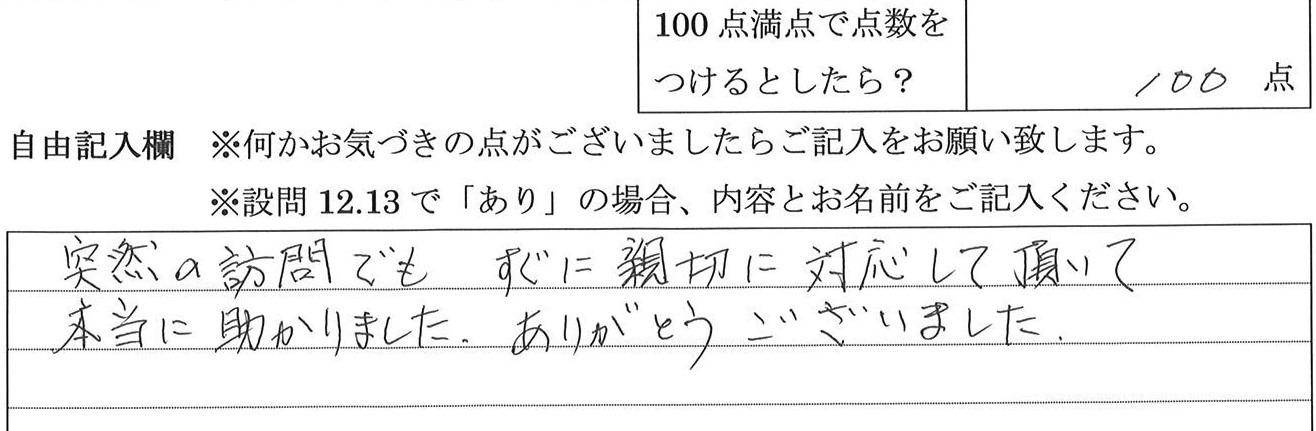 100点満点で点数を
つけるとしたら？
100 点
自由記入欄 ※何かお気づきの点がございましたらご記入をお願い致します。
※設問 12.13 で「あり」の場合、内容とお名前をご記入ください。
突然の訪問でも すぐに親切に対応して頂いて
本当に助かりました. ありがとうございました.